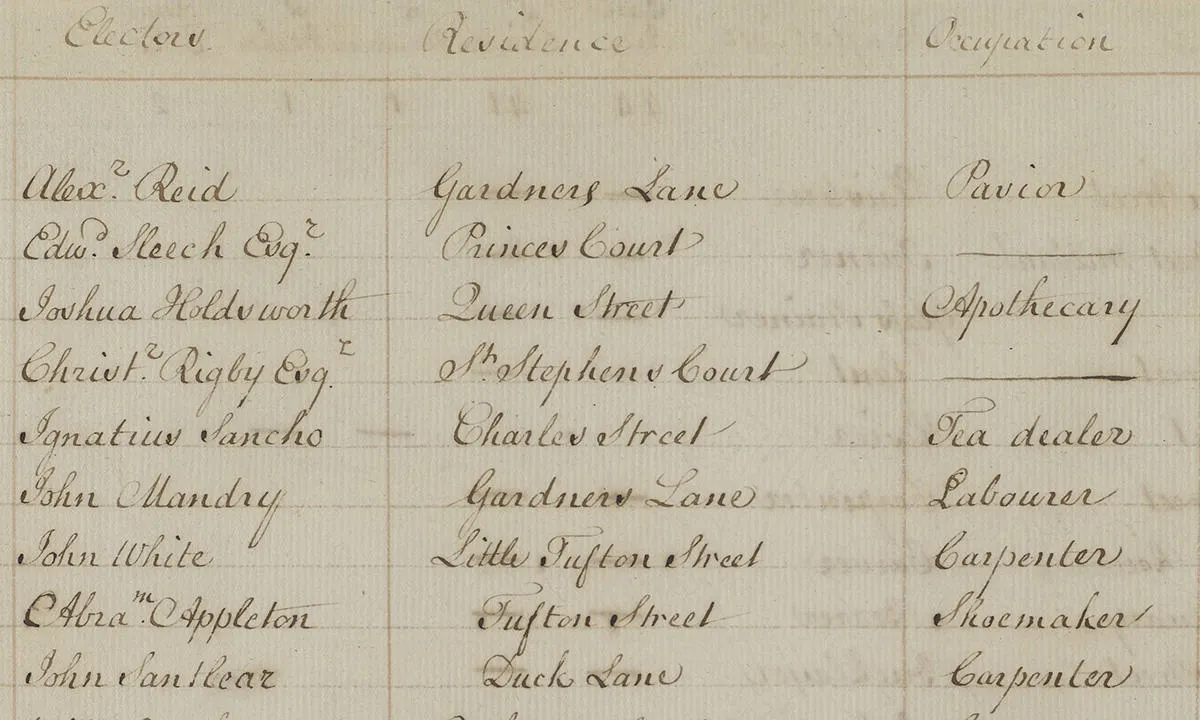 Electors Residence Occupation
Alexr. Reid Gardners Lane Pavior
Edwd. Sleech Esqr. Princes Court
Joshua Holdsworth Queen Street Apothecary
Christr. Rigby Esqr. St. Stephens Court
Ignatius Sancho Charles Street Tea dealer
John Mandry Gardners Lane Labourer
John White Little Tufton Street Carpenter
Abram. Appleton Tufton Street Shoemaker
John Duck Lane Carpenter